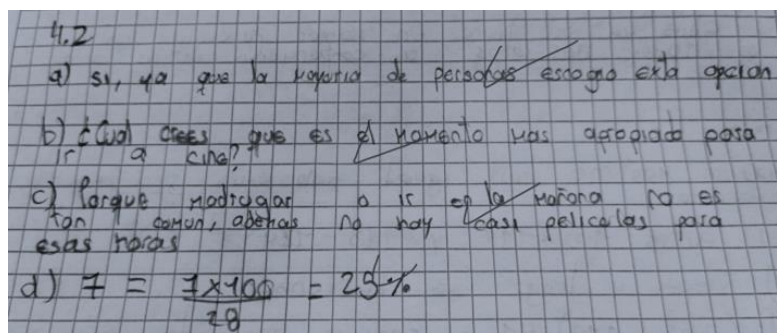 4.2
a) si, ya que la mayoria de personas escogio esta opcion
b) ¿Cual crees que es el momento mas apropiado para
ir a cine?
c) Porque madrugar o ir en la mañana no es
tan comun, ademas no hay casi peliculas para
esas horas
d) 7 = 7x100 = 25%
28